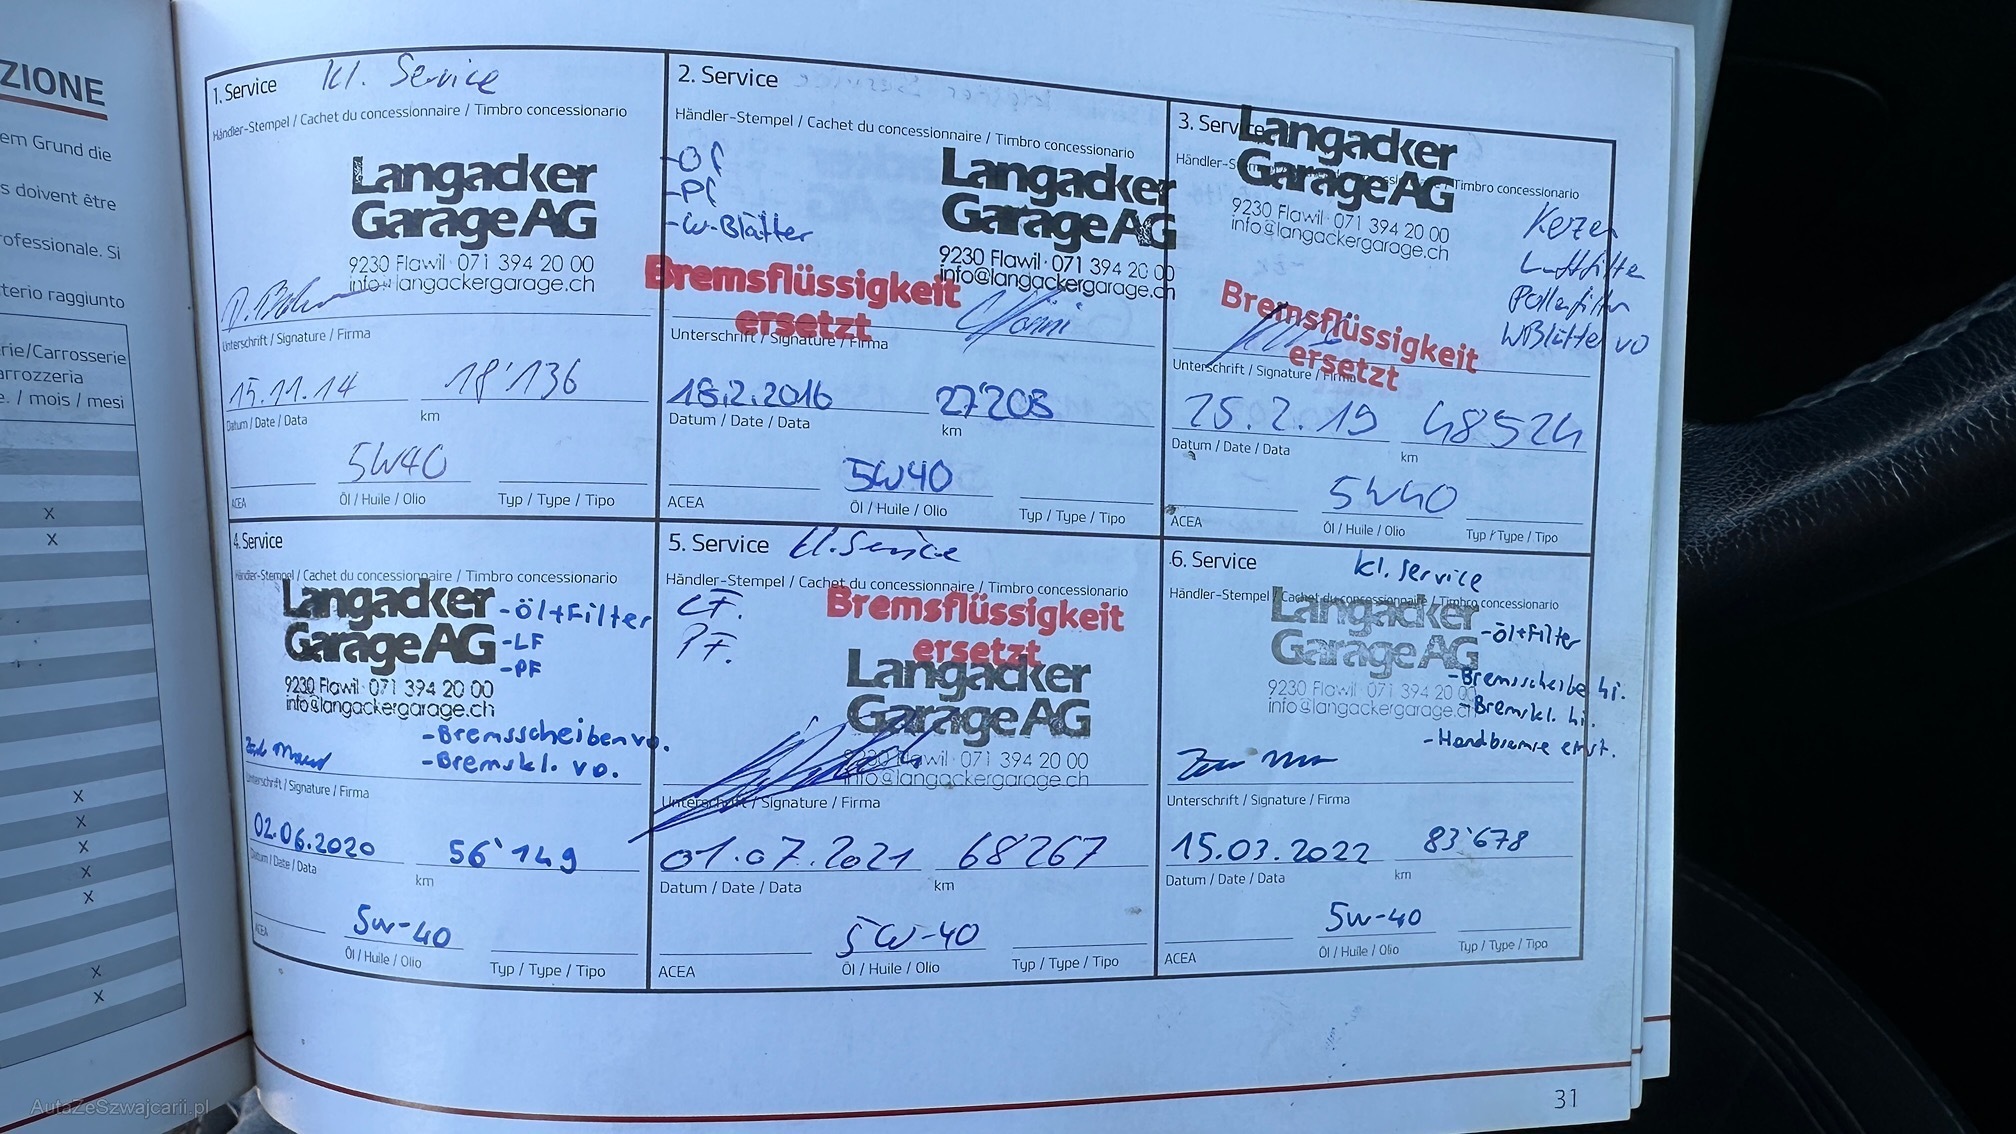 ZIONE
em Grund die
s doivent être
rofessionale. Si
terio raggiunto
rie/Carrosserie
arrozzeria
e. / mois / mesi
X
X
X
X
X
X
X
X
X
1. Service kl. Service
Händler-Stempel / Cachet du concessionnaire / Timbro concessionario
Langacker
Garage AG
9230 Flawil · 071 394 20 00
info@langackergarage.ch
Unterschrift / Signature / Firma
15.11.14 18'136
Datum / Date / Data km
5W40
ACEA Öl / Huile / Olio Typ / Type / Tipo
2. Service
Händler-Stempel / Cachet du concessionnaire / Timbro concessionario
-Of
-Pf
-W-Blätter
Langacker
Garage AG
9230 Flawil · 071 394 20 00
info@langackergarage.ch
Bremsflüssigkeit
ersetzt
Unterschrift / Signature / Firma
18.2.2016 27'208
Datum / Date / Data km
5W40
ACEA Öl / Huile / Olio Typ / Type / Tipo
3. Service
Langacker
Garage AG
Händler-Stempel / Timbro concessionario
9230 Flawil · 071 394 20 00
info@langackergarage.ch
Kerzen
Luftfilter
Pollenfilter
WBlätter vo
Bremsflüssigkeit
ersetzt
Unterschrift / Signature / Firma
25.2.19 48524
Datum / Date / Data km
5W40
ACEA Öl / Huile / Olio Typ / Type / Tipo
4. Service
Händler-Stempel / Cachet du concessionnaire / Timbro concessionario
Langacker
Garage AG
9230 Flawil · 071 394 20 00
info@langackergarage.ch
-Öl+Filter
-LF
-PF
-Bremsscheiben vo.
-Bremskl. vo.
Unterschrift / Signature / Firma
02.06.2020 56'149
Datum / Date / Data km
5w-40
ACEA Öl / Huile / Olio Typ / Type / Tipo
5. Service kl. Service
Händler-Stempel / Cachet du concessionnaire / Timbro concessionario
LF.
PF.
Bremsflüssigkeit
ersetzt
Langacker
Garage AG
9230 Flawil · 071 394 20 00
info@langackergarage.ch
Unterschrift / Signature / Firma
01.07.2021 68267
Datum / Date / Data km
5W-40
ACEA Öl / Huile / Olio Typ / Type / Tipo
6. Service kl. Service
Händler-Stempel / Cachet du concessionnaire / Timbro concessionario
Langacker
Garage AG
9230 Flawil · 071 394 20 00
info@langackergarage.ch
-Öl+Filter
-Bremsscheibe hi.
-Bremskl. hi.
-Handbremse einst.
Unterschrift / Signature / Firma
15.03.2022 83'678
Datum / Date / Data km
5w-40
ACEA Öl / Huile / Olio Typ / Type / Tipo
31
AutaZeSzwajcarii.pl